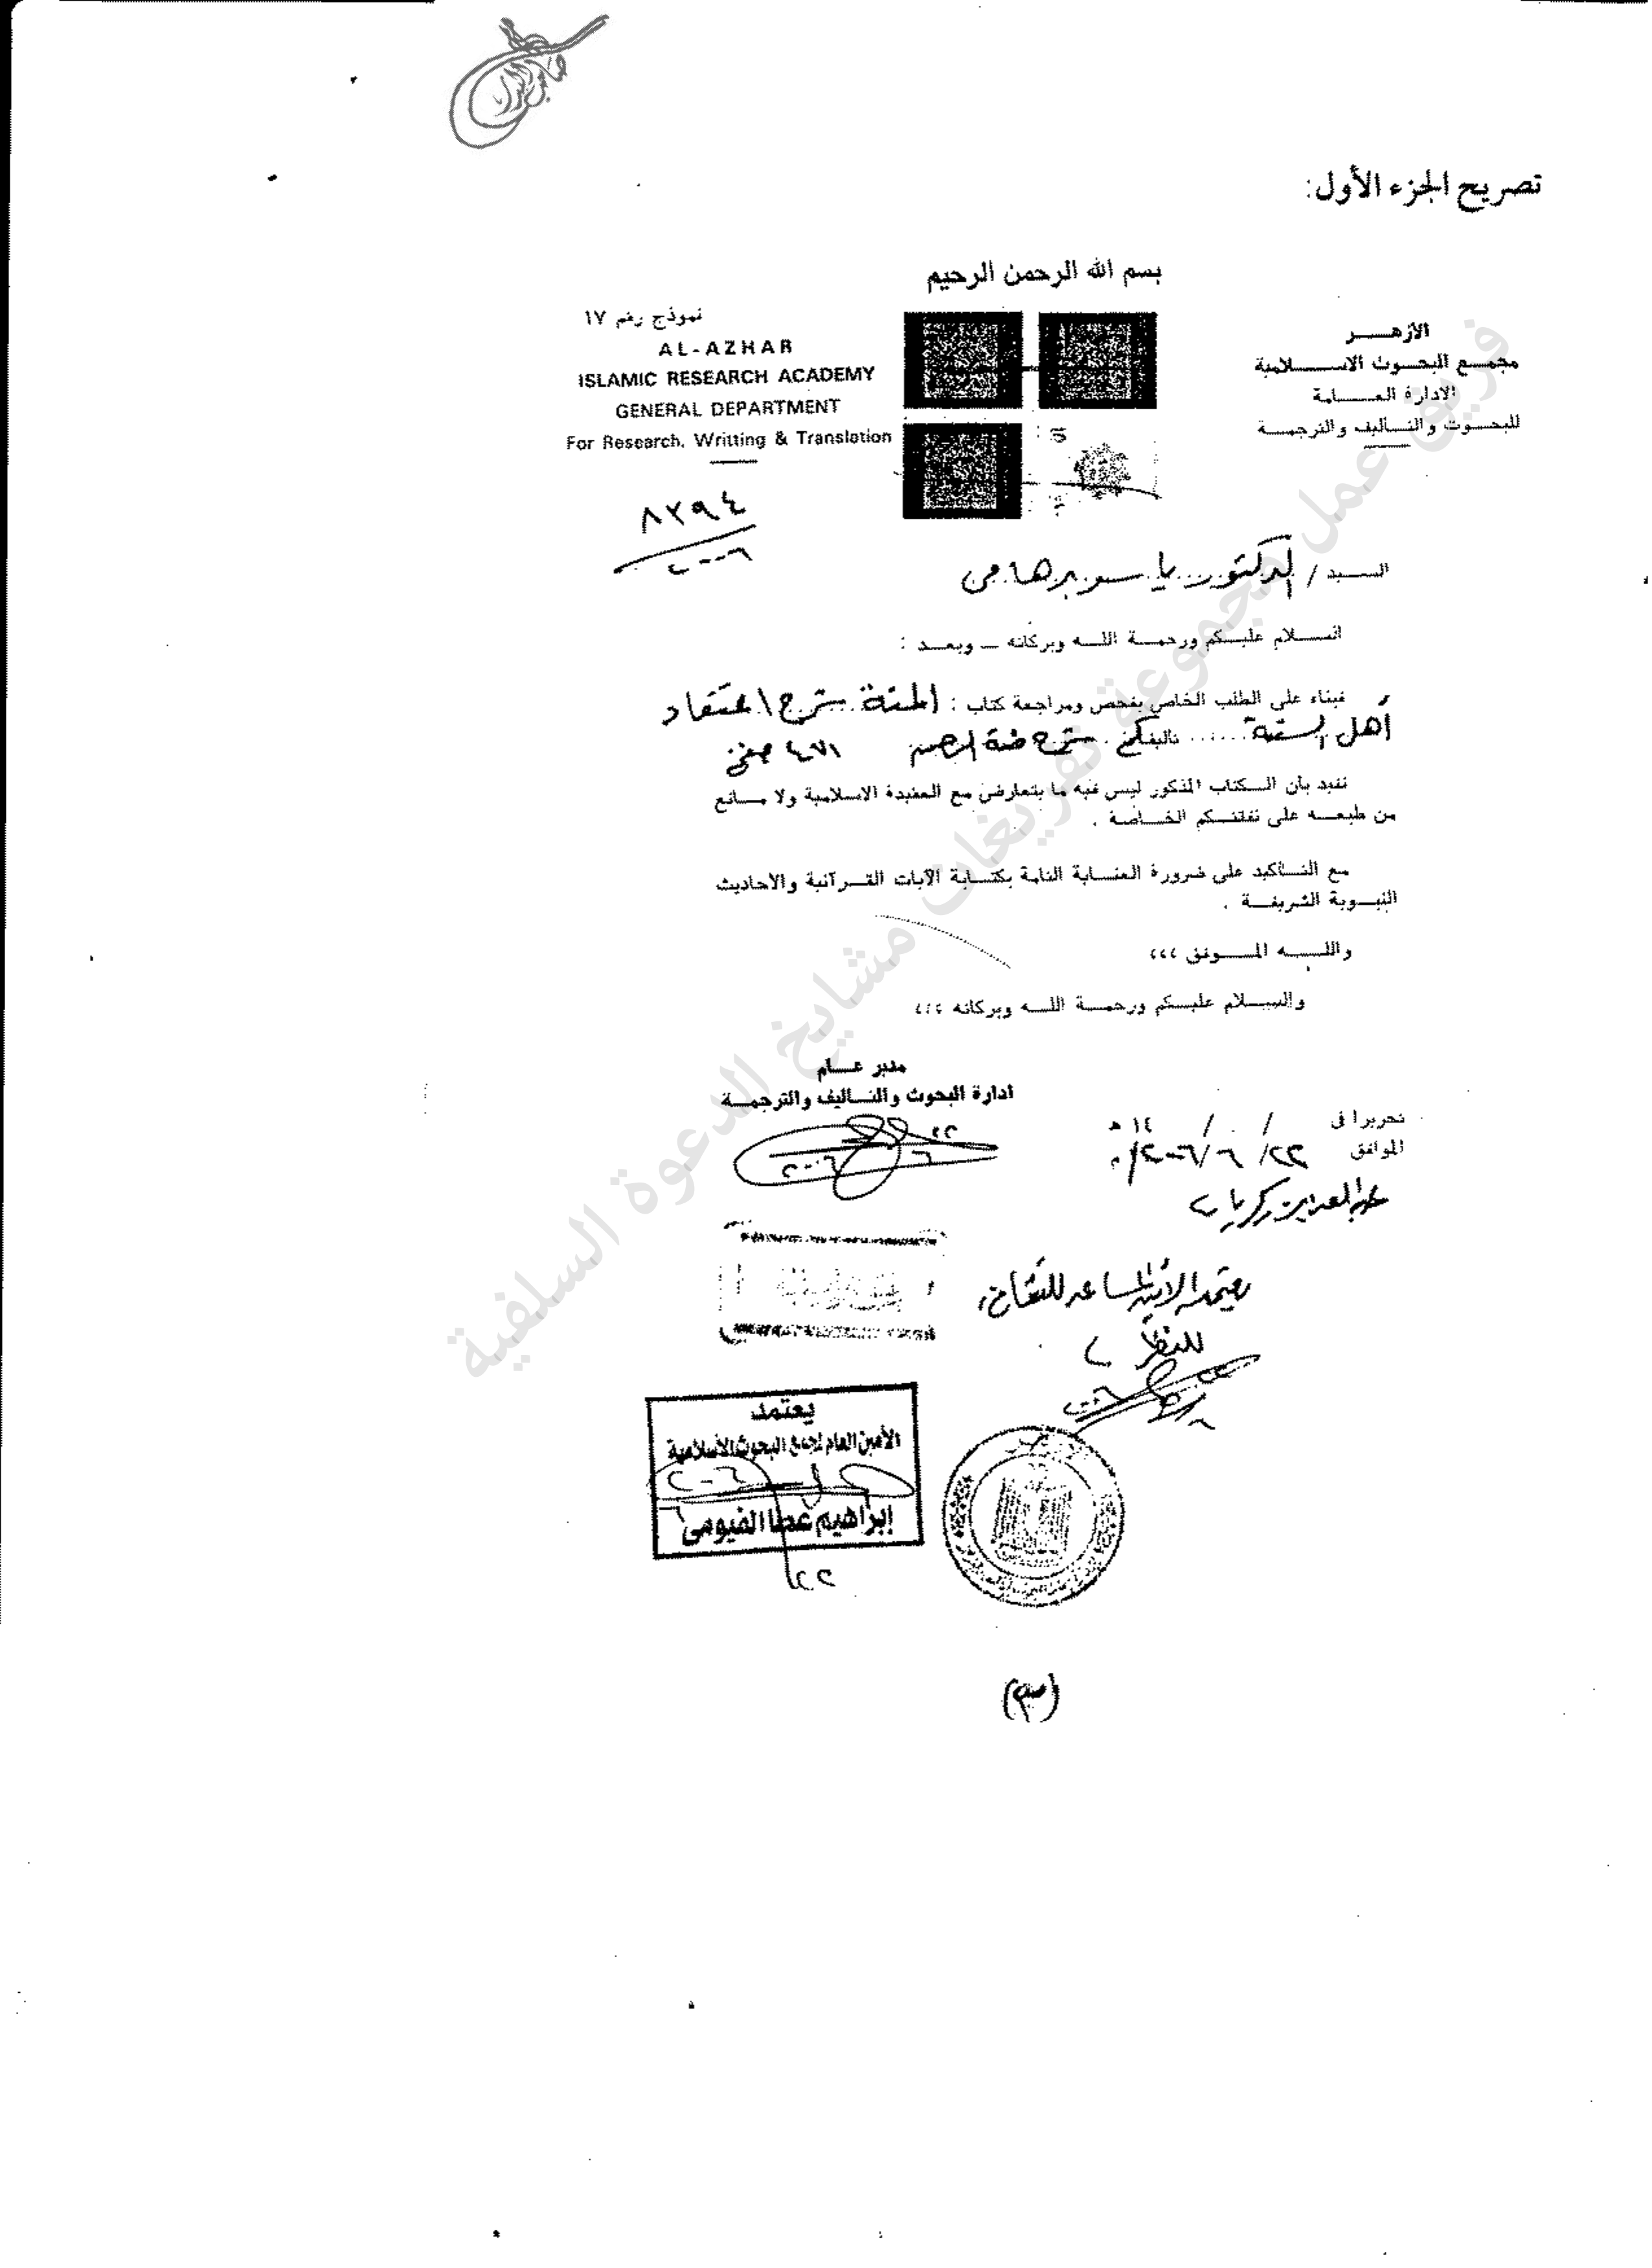 تصريح الجزء الأول:
بسم الله الرحمن الرحيم
الأزهــر
مجمـع البحـوث الاســـلامية
الادارة العـــامة
للبحـــوث والتـــأليف والترجمـــة
نموذج رقم ١٧
AL-AZHAR
ISLAMIC RESEARCH ACADEMY
GENERAL DEPARTMENT
For Research, Writting & Translation
٨٢٩٤
٢٠٠٦
السـيد / الدكتور ياسر برهامى
السـلام عليـكم ورحمـة اللـه وبركاته ــ وبعـد :
فبناء على الطلب الخاص بفحص ومراجعة كتاب : المنة شرح اعتقاد
أهل السنة ...... تأليفكم
نفيد بأن الـكتاب المذكور ليس فيه ما يتعارض مع العقيدة الاسـلامية ولا مـانع
من طبعـه على نفقتـكم الخـاصة .
مع التـأكيد على ضرورة العنـاية التامة بكتـابة الآيات القـرآنية والاحاديث
النبـوية الشريفـة .
واللـه المـوفق ،،،
والسـلام عليـكم ورحمـة اللـه وبركاته ،،،
مدير عـام
ادارة البحوث والتـأليف والترجمـة
٢٢
٦
٢٠٠٦
تحريرا فى / / ١٤ هـ
الموافق ٢٢/ ٦ /٢٠٠٦ م
يعتمد
الأمين العام لمجمع البحوث الإسلامية
٢٠٠٦
إبراهيم عطا الفيومى
٢٢
(٣)
فريق عمل مجموعة تفريغات مشايخ الدعوة السلفية